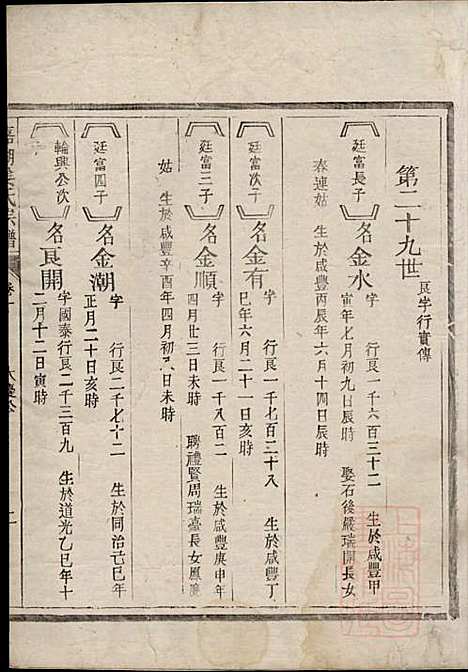 第二十九世 良字行實傳
廷富長子 名金水 字 行良一千六百三十二 生於咸豐甲
寅年七月初九日辰時 娶石後嚴瑞開長女
春連姑 生於咸豐丙辰年六月十四日辰時
廷富次子 名金有 字 行良一千七百二十八 生於咸豐丁
巳年六月二十一日酉時
廷富三子 名金順 字 行良一千八百二 生於咸豐庚申年
四月廿三日未時 聘禮賢周瑞臺長女鳳
姑 生於咸豐辛酉年四月初六日未時
廷富四子 名金潮 字 行良二千七十二 生於同治己巳年
正月二十日亥時
輪興公次 名良開 字國泰行良二千三百九 生於道光乙巳年十
二月十二日寅時
氏宗譜 卷